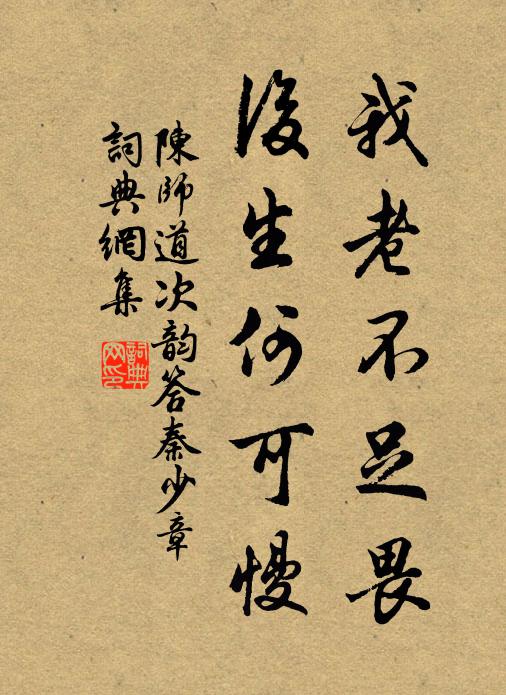 我老不足畏
後生何可慢
陳師道次韵答秦少章
詞典網集
詞典
网印